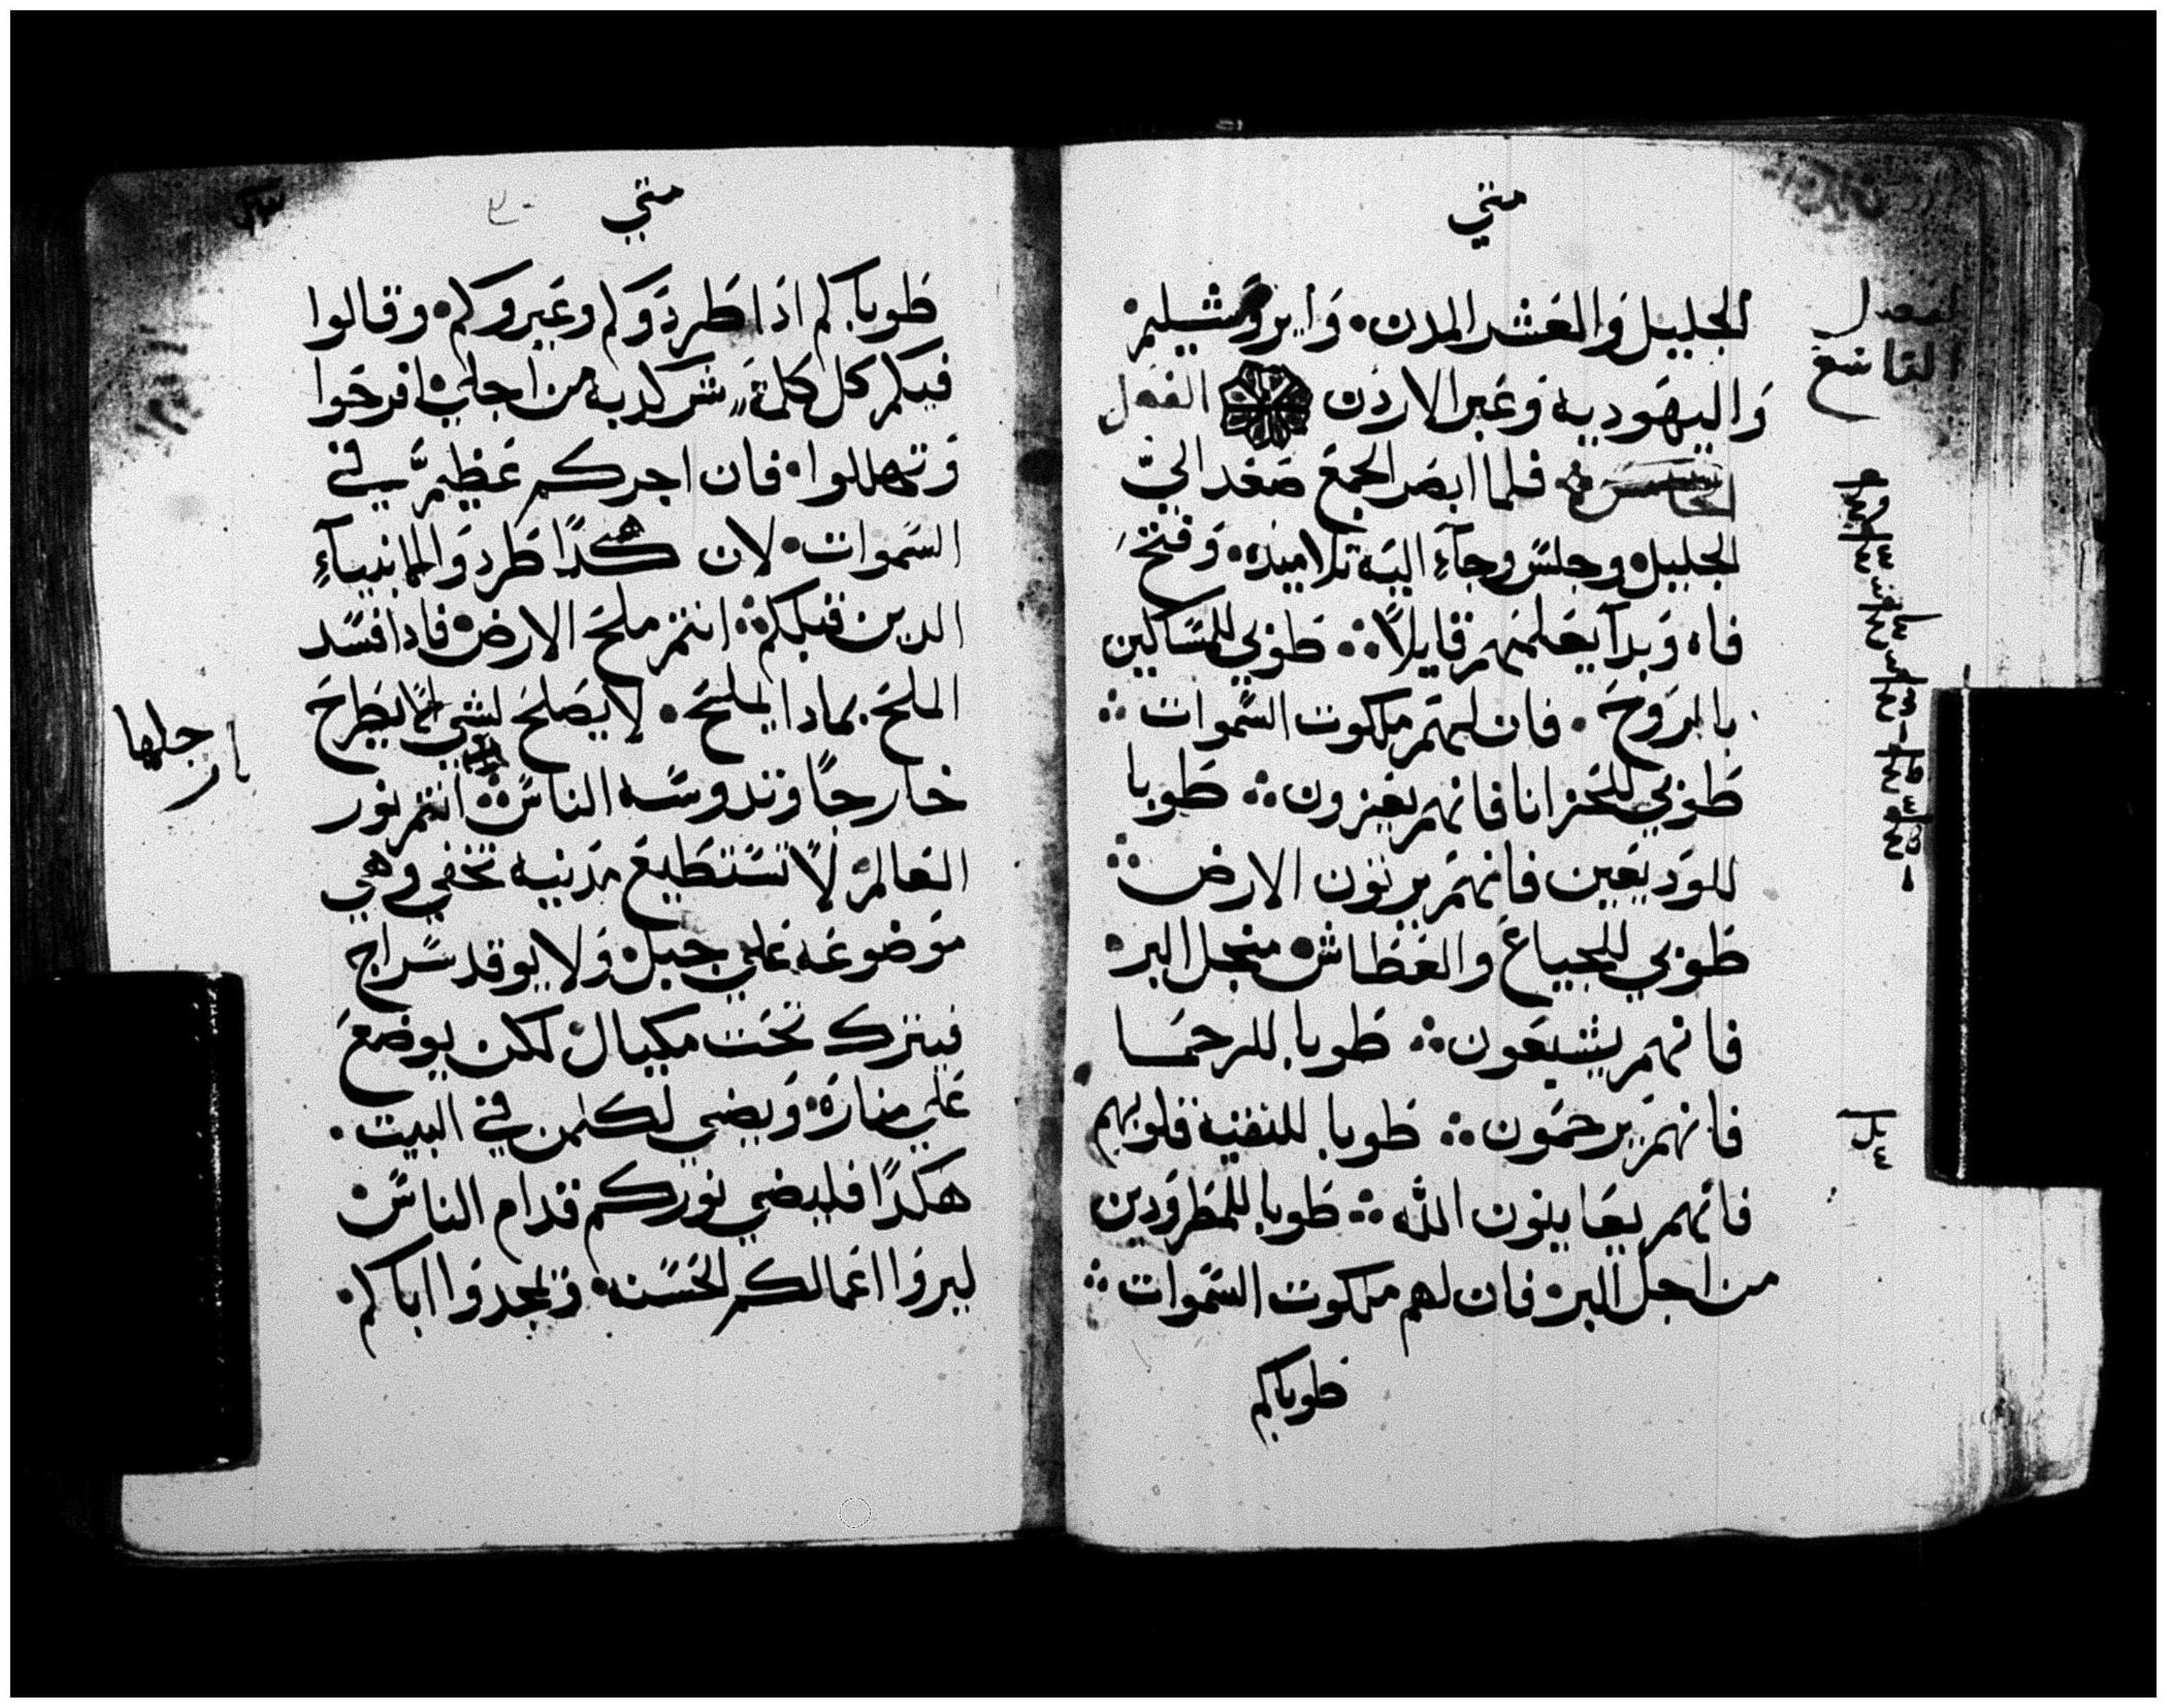 متي
الجليل والعشر المدن. وايروشليم.
واليهودية وعبر الاردن الفصل
فلما ابصر الجمع صعد الي
الجليل وجلس وجآء اليه تلاميذه. وفتح
فاه وبدآ يعلمهم قايلاً ∴ طوبي للمساكين
بالروح. فان لهم ملكوت السموات ∴
طوبي للحزانا فانهم يعزون ∴ طوبا
للوديعين فانهم يرثون الارض ∴
طوبي للجياع والعطاش منجل البر.
فانهم يشبعون ∴ طوبا للرحما
فانهم يرحمون ∴ طوبا للنقيه قلوبهم
فانهم يعاينون الله ∴ طوبا للمطرودين
من اجل البر. فان لهم ملكوت السموات ∴
طوباكم
الفصل
التاسع
متي
طوباكم اذا طردوكم وعيروكم. وقالوا
فيكم كل كلمة شر كدبه من اجلي. افرحوا
وتهللوا. فان اجركم عظيم في
السموات. لان هكذا طردوا الانبيآء
الدين قبلكم ∴ انتم ملح الارض. فادا فسد
الملح. بمادا يملح. لا يصلح لشي انما يطرح
خارجاً وتدوسه الناس ∴ انتم نور
العالم. لا تستطيع مدنيه تخفي وهي
موضوعه علي جبل. ولا يوقد سراج
فيترك تحت مكيال. لكن يوضع
علي مناره. ويضي لكلمن في البيت.
هكذا فليضي نوركم قدام الناس.
ليروا اعمالكم الحسنه. ويمجدوا اباكم.